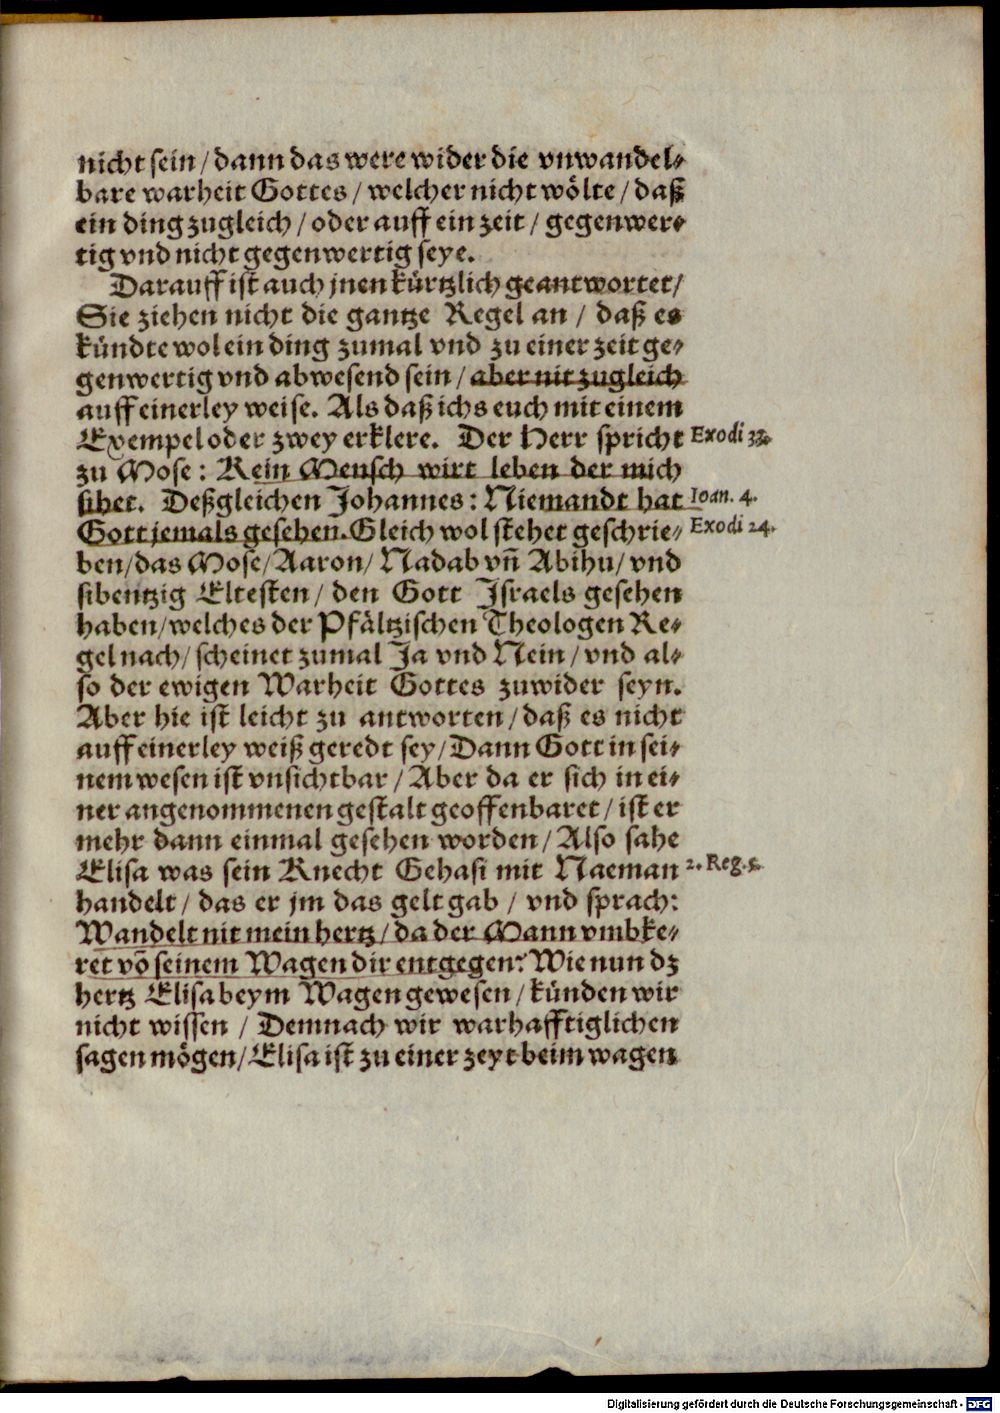 nicht sein / dann das were wider die vnwandel-
bare warheit Gottes / welcher nicht wölte / daß
ein ding zugleich / oder auff ein zeit / gegenwer-
tig vnd nicht gegenwertig seye.
Darauff ist auch jnen kürtzlich geantwortet /
Sie ziehen nicht die gantze Regel an / daß es
kündte wol ein ding zumal vnd zu einer zeit ge-
genwertig vnd abwesend sein / aber nit zugleich
auff einerley weise. Als daß ichs euch mit einem
Exempel oder zwey erklere. Der Herr spricht Exodi 33.
zu Mose: Kein Mensch wirt leben der mich
sihet. Deßgleichen Johannes: Niemandt hat Ioan. 4.
Gott jemals gesehen. Gleich wol stehet geschrie- Exodi 24.
ben / das Mose / Aaron / Nadab vñ Abihu / vnd
sibentzig Eltesten / den Gott Israels gesehen
haben / welches der Pfältzischen Theologen Re-
gel nach / scheinet zumal Ja vnd Nein / vnd al-
so der ewigen Warheit Gottes zuwider seyn.
Aber hie ist leicht zu antworten / daß es nicht
auff einerley weiß geredt sey / Dann Gott in sei-
nem wesen ist vnsichtbar / Aber da er sich in ei-
ner angenommenen gestalt geoffenbaret / ist er
mehr dann einmal gesehen worden / Also sahe
Elisa was sein Knecht Gehasi mit Naeman 2. Reg. 5.
handelt / das er jm das gelt gab / vnd sprach:
Wandelt nit mein hertz / da der Mann vmbke-
ret võ seinem Wagen dir entgegen: Wie nun dz
hertz Elisa beym Wagen gewesen / künden wir
nicht wissen / Demnach wir warhafftiglichen
sagen mögen / Elisa ist zu einer zeyt beim wagen
Digitalisierung gefördert durch die Deutsche Forschungsgemeinschaft - DFG